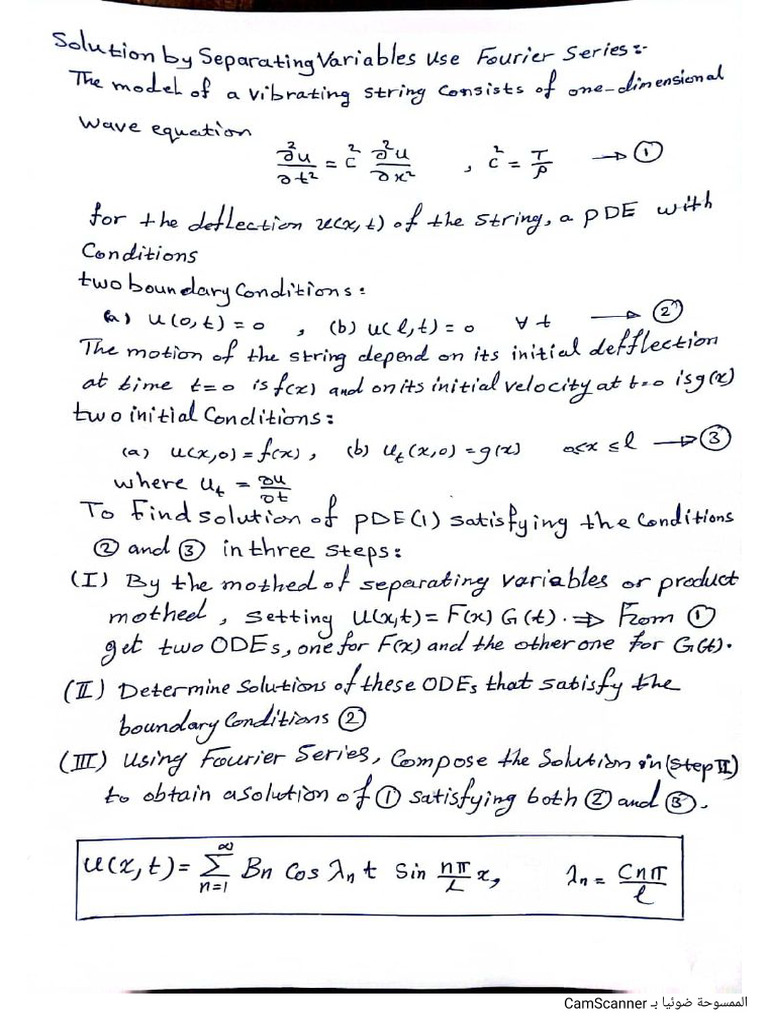 Solution by Separating Variables Use Fourier Series:-
The model of a vibrating string Consists of one-dimensional
wave equation
∂²u/∂t² = c² ∂²u/∂x² , c² = T/ρ → ①
for the deflection u(x,t) of the string, a PDE with
Conditions
two boundary Conditions:
(a) u(0,t) = 0 , (b) u(l,t) = 0 ∀ t → ②
The motion of the string depend on its initial defflection
at time t=0 is f(x) and on its initial velocity at t=0 is g(x)
two initial Conditions:
(a) u(x,0) = f(x) , (b) u_t(x,0) = g(x) 0≤x≤l → ③
where u_t = ∂u/∂t
To Find solution of PDE(1) satisfying the Conditions
② and ③ in three steps:
(I) By the mothed of separating variables or product
mothed, setting u(x,t) = F(x) G(t). ⇒ From ①
get two ODEs, one for F(x) and the other one for G(t).
(II) Determine Solutions of these ODEs that satisfy the
boundary Conditions ②
(III) Using Fourier Series, Compose the Solution in (Step II)
to obtain a solution of ① satisfying both ② and ③.
u(x,t) = ∑_{n=1}^{∞} Bn Cos λn t Sin nπ/L x, λn = Cnπ/l
الممسوحة ضوئيا بـ CamScanner